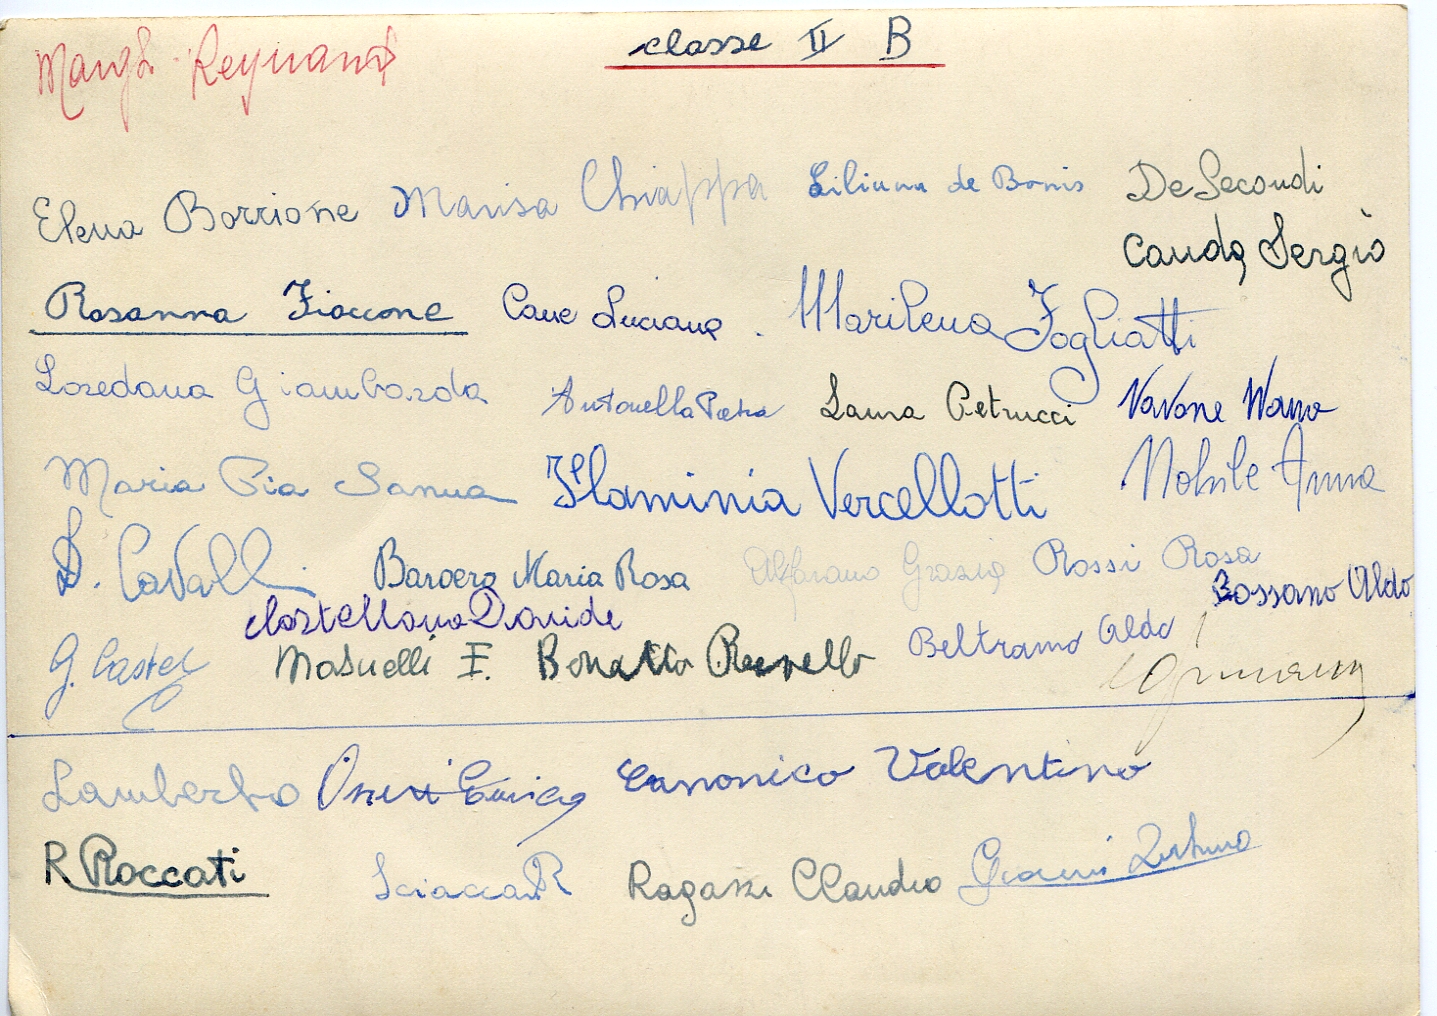 classe II B
Elena Borrione Marisa Chiappa Liliana de Bonis De Secondi
Cauda Sergio
Rosanna Fiaccone Cane Luciana . Marilena Fogliatti
Loredana Giambarda Antonella Petra Laura Petrucci Vavone
Maria Pia Sanna Flaminia Vercellotti Nobile Anna
D. Cavalli Baroero Maria Rosa Alfarano Grazia Rossi Rosa
Bossano Aldo
Castellano Davide
G. Castel Masuelli F. Bonatto Beltramo Aldo
Lamberto Canonico Valentino
R Roccati Sciacca R Ragazzi Claudio Gianni